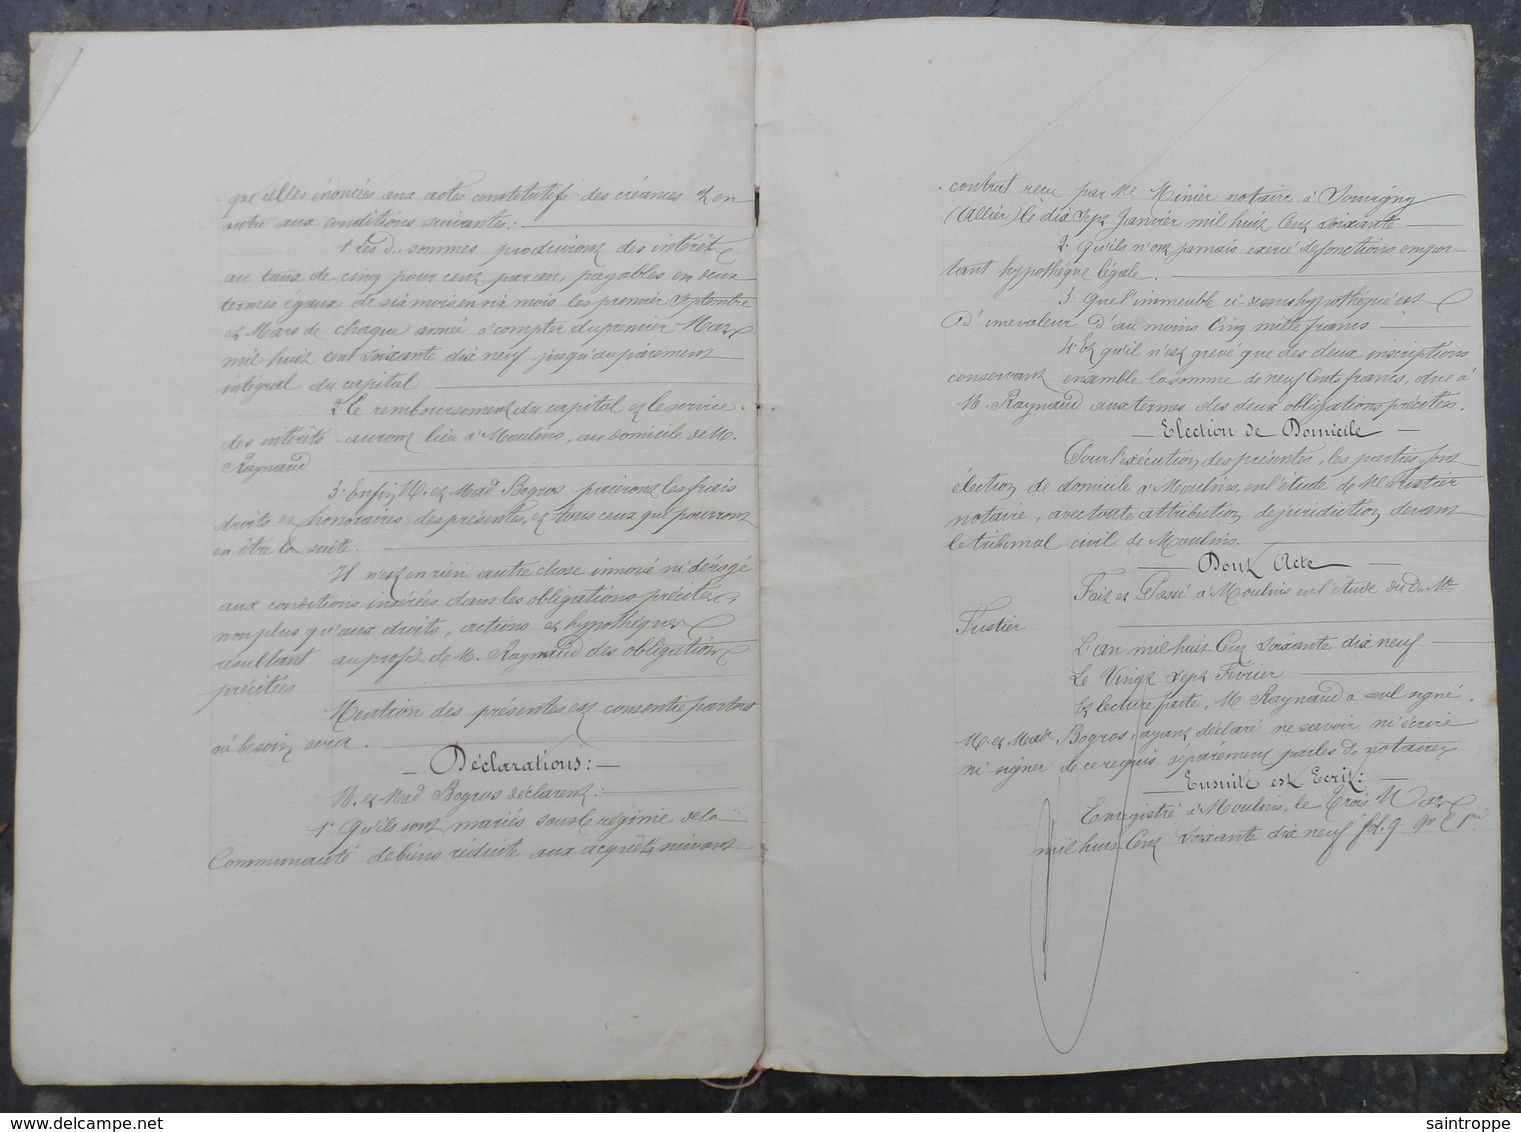 que celles énoncées aux actes constitutifs des créances et en
outre aux conditions suivantes:
1° Les d. sommes produiront des intérêts
au taux de cinq pour cent par an, payables en deux
termes égaux de six mois en six mois les premier Septembre
et Mars de chaque année à compter du premier Mars
mil huit cent soixante dix neuf jusqu'au paiement
intégral du capital
2° Le remboursement du capital et le service
des intérêts auront lieu à Moulins, au domicile de M.
Raynaud
3° Enfin M. et Mad. Bogros paieront les frais
droits et honoraires des présentes, et tous ceux qui pourront
en être la suite.
Il n'est en rien autre chose innové ni dérogé
aux conditions insérées dans les obligations précitées
non plus qu'aux droits, actions et hypothèques
résultant au profit de M. Raynaud des obligations
précitées
Mention des présentes est consentie partout
où besoin sera.
— Déclarations: —
M. et Mad. Bogros déclarent:
1° Qu'ils sont mariés sous le régime de la
Communauté de biens réduite aux acquêts suivant
contrat reçu par Me Minier notaire à Souvigny
(Allier) le dix sept Janvier mil huit Cent soixante
2° Qu'ils n'ont jamais exercé de fonctions empor-
tant hypothèque légale.
3° que l'immeuble ci-dessus hypothéqué est
D'une valeur D'au moins Cinq mille francs
4° Et qu'il n'est grevé que des deux inscriptions
conservant ensemble la somme de neuf Cents francs, due à
M. Raynaud aux termes des deux obligations précitées.
— Election de Domicile —
Pour l'exécution des présentes, les parties font
élection de domicile à Moulins, en l'étude de Me Fustier
notaire, avec toute attribution de juridiction devant
le tribunal civil de Moulins.
— Dont Acte —
Fait et Passé à Moulins en l'étude du D. Me
Fustier
L'an mil huit Cent soixante dix neuf
Le Vingt sept Février
Et lecture faite, M. Raynaud a seul signé,
M. et Made Bogros, ayant déclaré ne savoir ni écrire
ni signer de ce requis séparément par les d. notaires
— Ensuite est Ecrit:
Enregistré à Moulins, le Trois Mars
mil huit Cent soixante dix neuf fol. 9
saintroppe